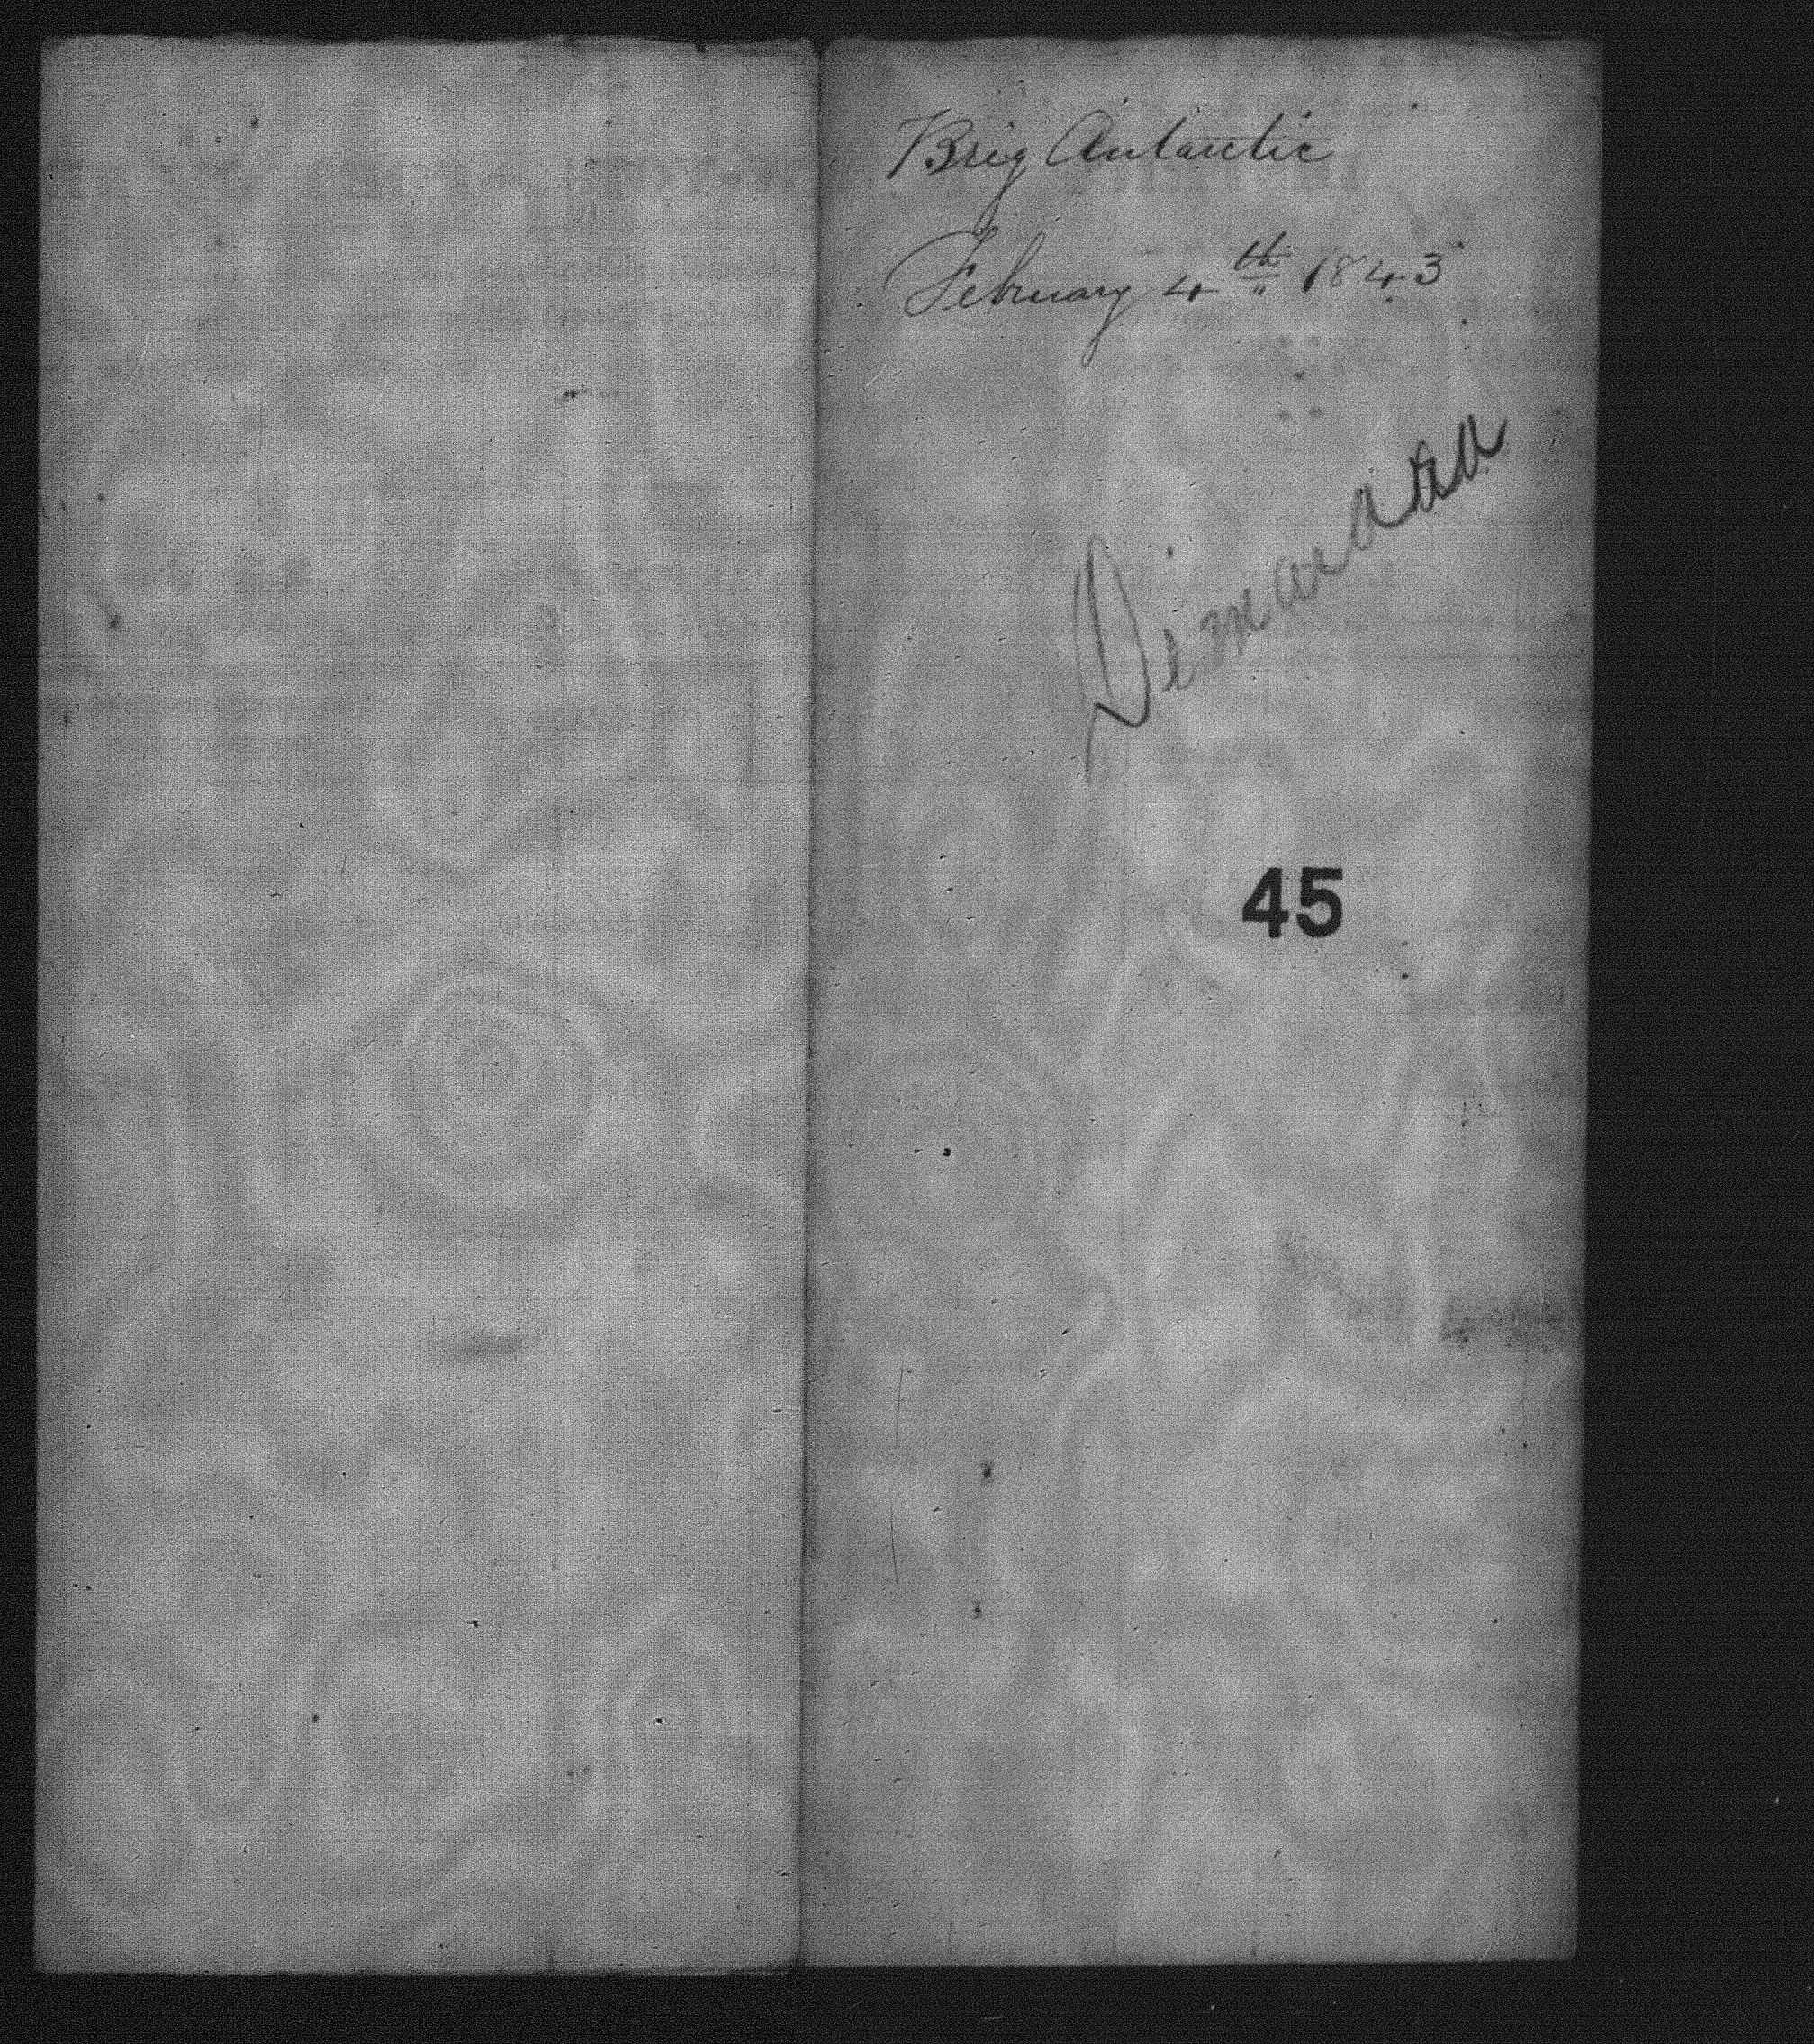 Brig Antarctic
February 4th 1843
Dimarara
45